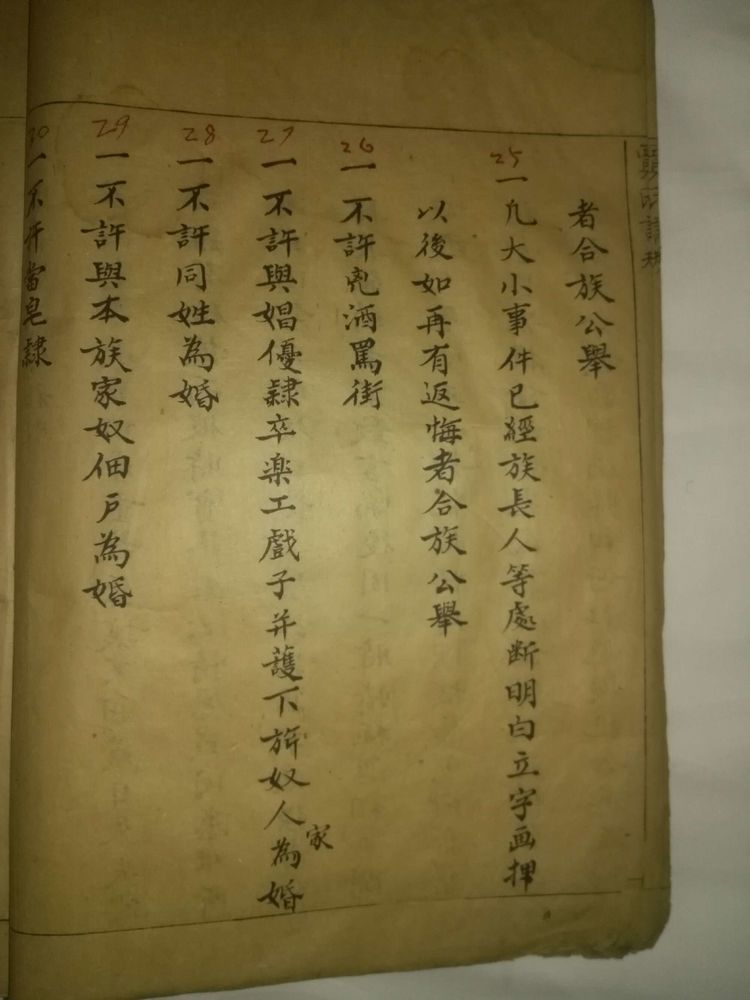 者合族公舉
25
一凡大小事件已經族長人等處断明白立字画押
以後如再有返悔者合族公舉
26
一不許兇酒罵街
27
一不許與娼優隸卒楽工戲子并護下旂奴人家為婚
28
一不許同姓為婚
29
一不許與本族家奴佃戸為婚
30
一不許當皂隸